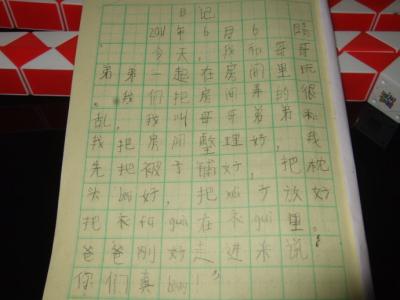 日记
2011年6月6 晴
今天,我和哥哥
弟弟一起在房间里玩
。我们把房间弄的很
乱,我叫哥哥弟弟和
我把房间整理好,我
先把被子铺好,把枕
头bai好,把xie子放好
把衣 gua在衣gui里。
爸爸刚好走进来说:
你们真bang!"